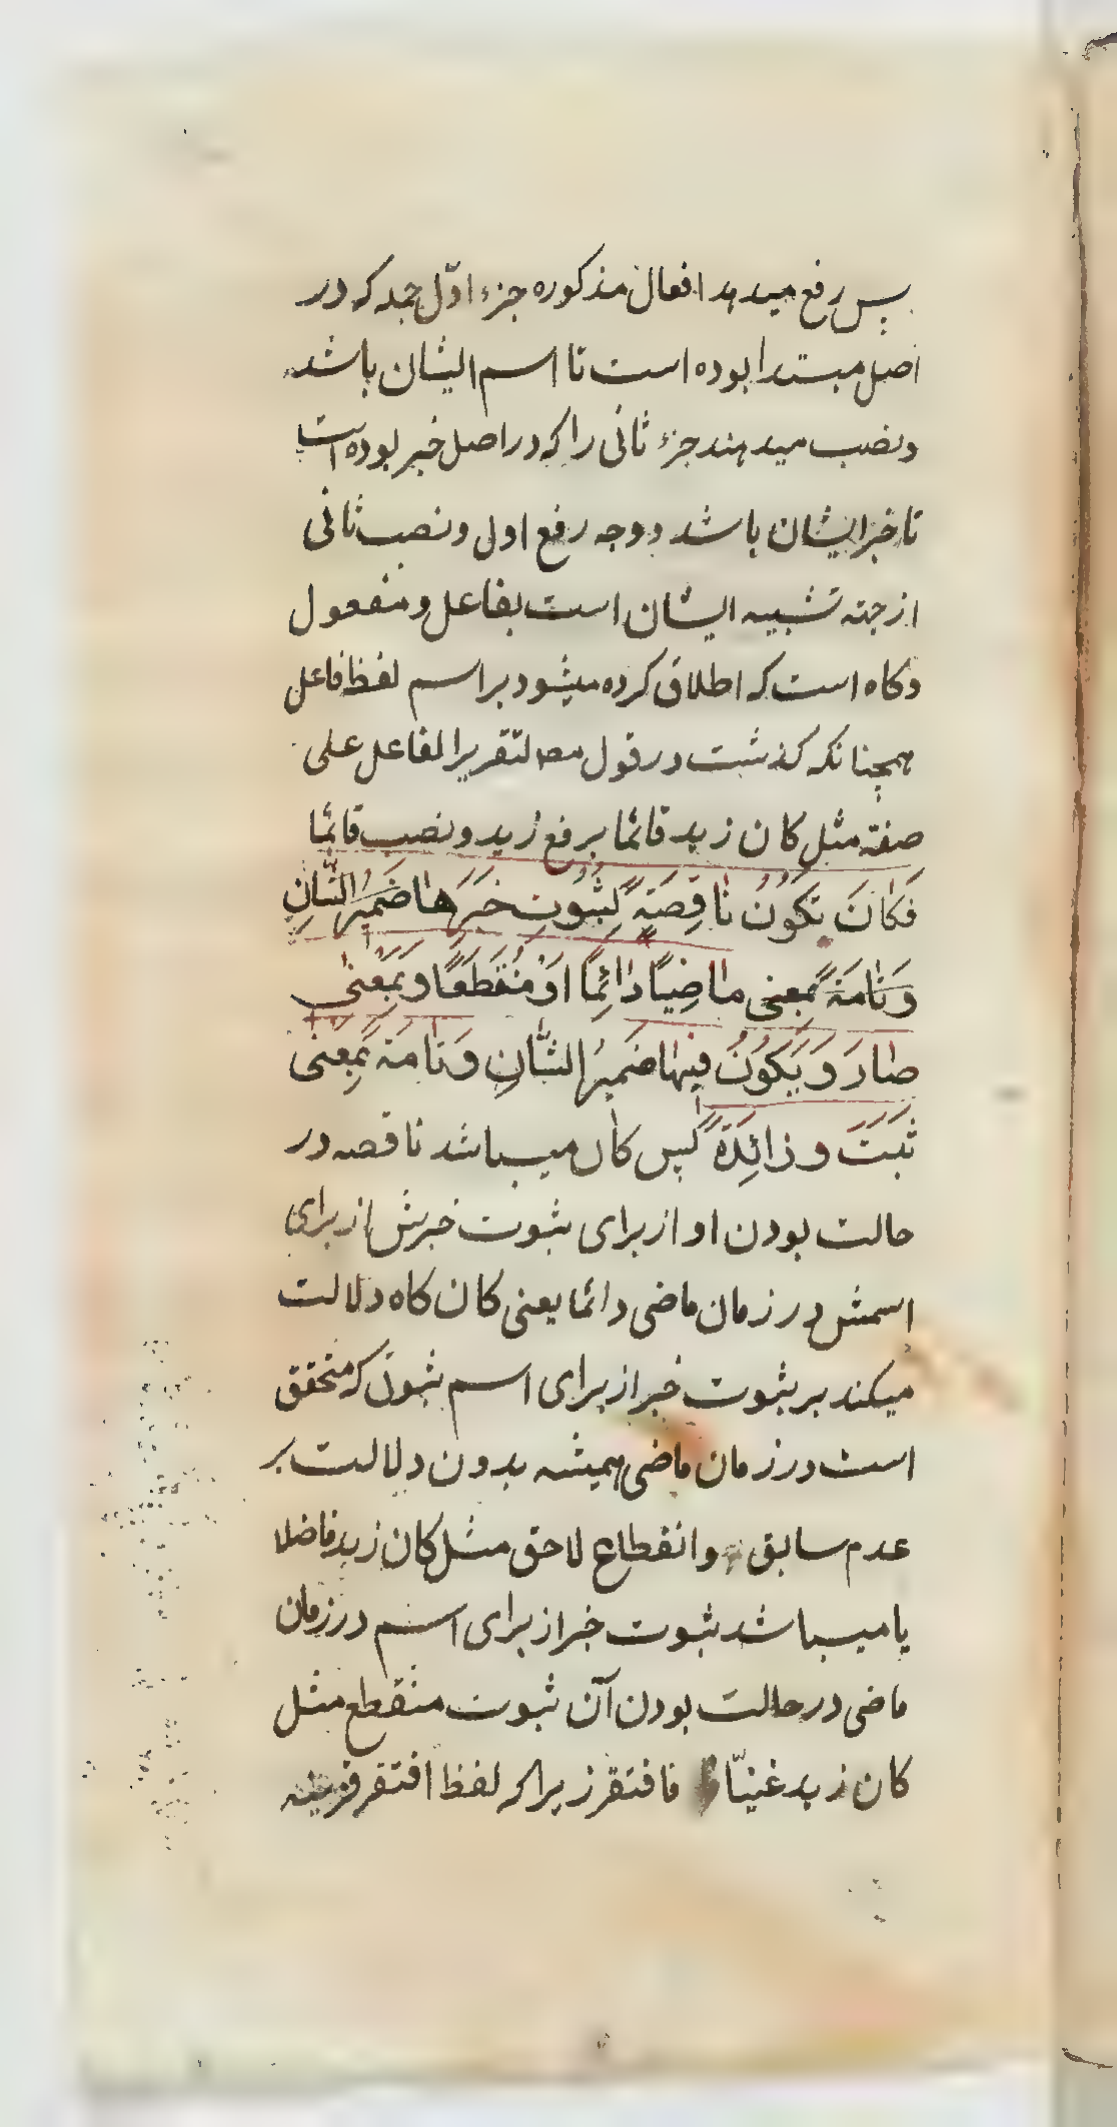 پس رفع میدهد افعال مذکوره جزء اوّل جمله که در
اصل مبتدا بوده است تا اسم ایشان باشد
ونصب میدهند جزء ثانی را که در اصل خبر بوده است
تا خبر ایشان باشد ووجه رفع اول ونصب ثانی
از جهته تشبیه ایشان است بفاعل و مفعول
وکاه است که اطلاق کرده میشود بر اسم لفظ فاعل
همچنانکه کذشت در قول مصـ لتقریر الفاعل علی
صفة مثل کان زید قائما برفع زید ونصب قائما
فَکانَ تَکُونُ ناقِصَةً لِثُبُوتِ خَبَرِها ضَمیرُ الشّانِ
وَتامَةً بمعنی ماضِیًا دائِمًا اَوْ مُنْقَطَعًا وَبَمِعَنْی
صارَ وَیَکُونُ فیها ضَمیرُ الشّانِ وَتامَةً بَمِعْنی
ثَبَتَ وزائِدَةً پس کان میباشد ناقصه در
حالت بودن او از برای ثبوت خبرش از برای
اسمش در زمان ماضی دائما یعنی کان کاه دلالت
میکند بر ثبوت خبر از برای اسم ثبوتی که متحقق
است در زمان ماضی همیشه بدون دلالت بر
عدم سابق وانقطاع لاحق مثل کان زید فاضلا
یا میباشد ثبوت خبر از برای اسم در زمان
ماضی در حالت بودن آن ثبوت منقطع مثل
کان زید غنیّا فافتقر زیرا که لفظ افتقر قرینه